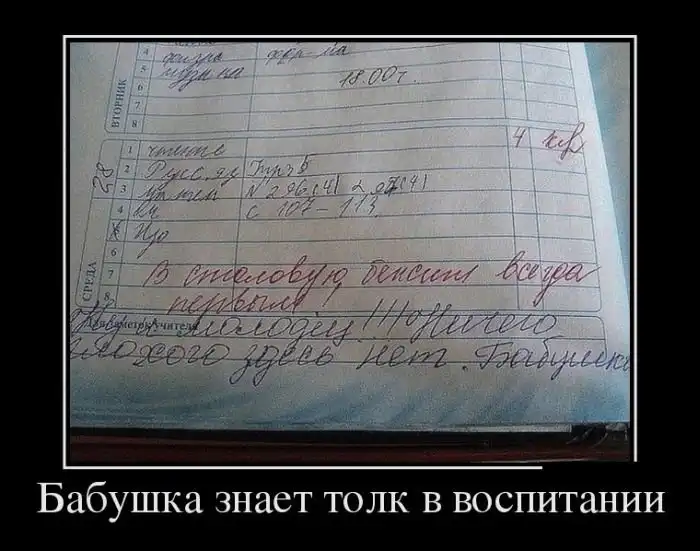 4
5 физра фор-ма
6 музыка 18.00 г.
7
8
ВТОРНИК
28
1 чтение 4
2 Русс. яз Упр 5
3 матем N 296(4) 297(4)
4 с 107-113
5 Изо
6
7 В столовую бежит всегда
8 первым
СРЕДА
Ну и молодец!!! Ничего
плохого здесь нет. Бабушка
Бабушка знает толк в воспитании